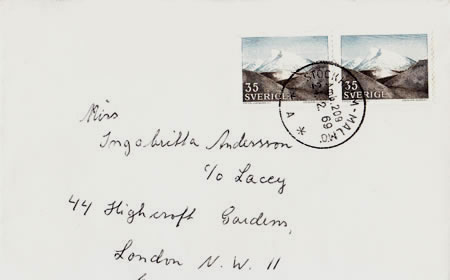 35
SVERIGE
35
SVERIGE
STOCKH M-MALMÖ
209
2 69
A *
Miss
Ingabritta Andersson
c/o Lacey
44 Highcroft Gardens,
London N.W. 11